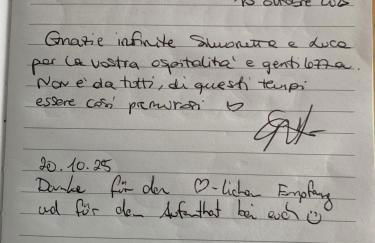 Grazie infinite Simonetta e Luca
per la vostra ospitalità e gentilezza.
Non è da tutti, di questi tempi
essere così premurosi ♡
20.10.25
Danke für den ♡-lichen Empfang
und für den Aufenthat bei euch ☺